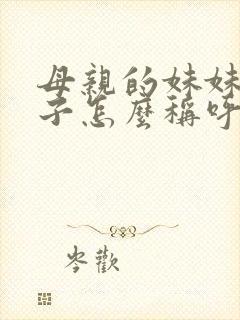 母親的妹妹
子怎麼稱呼
岑歡